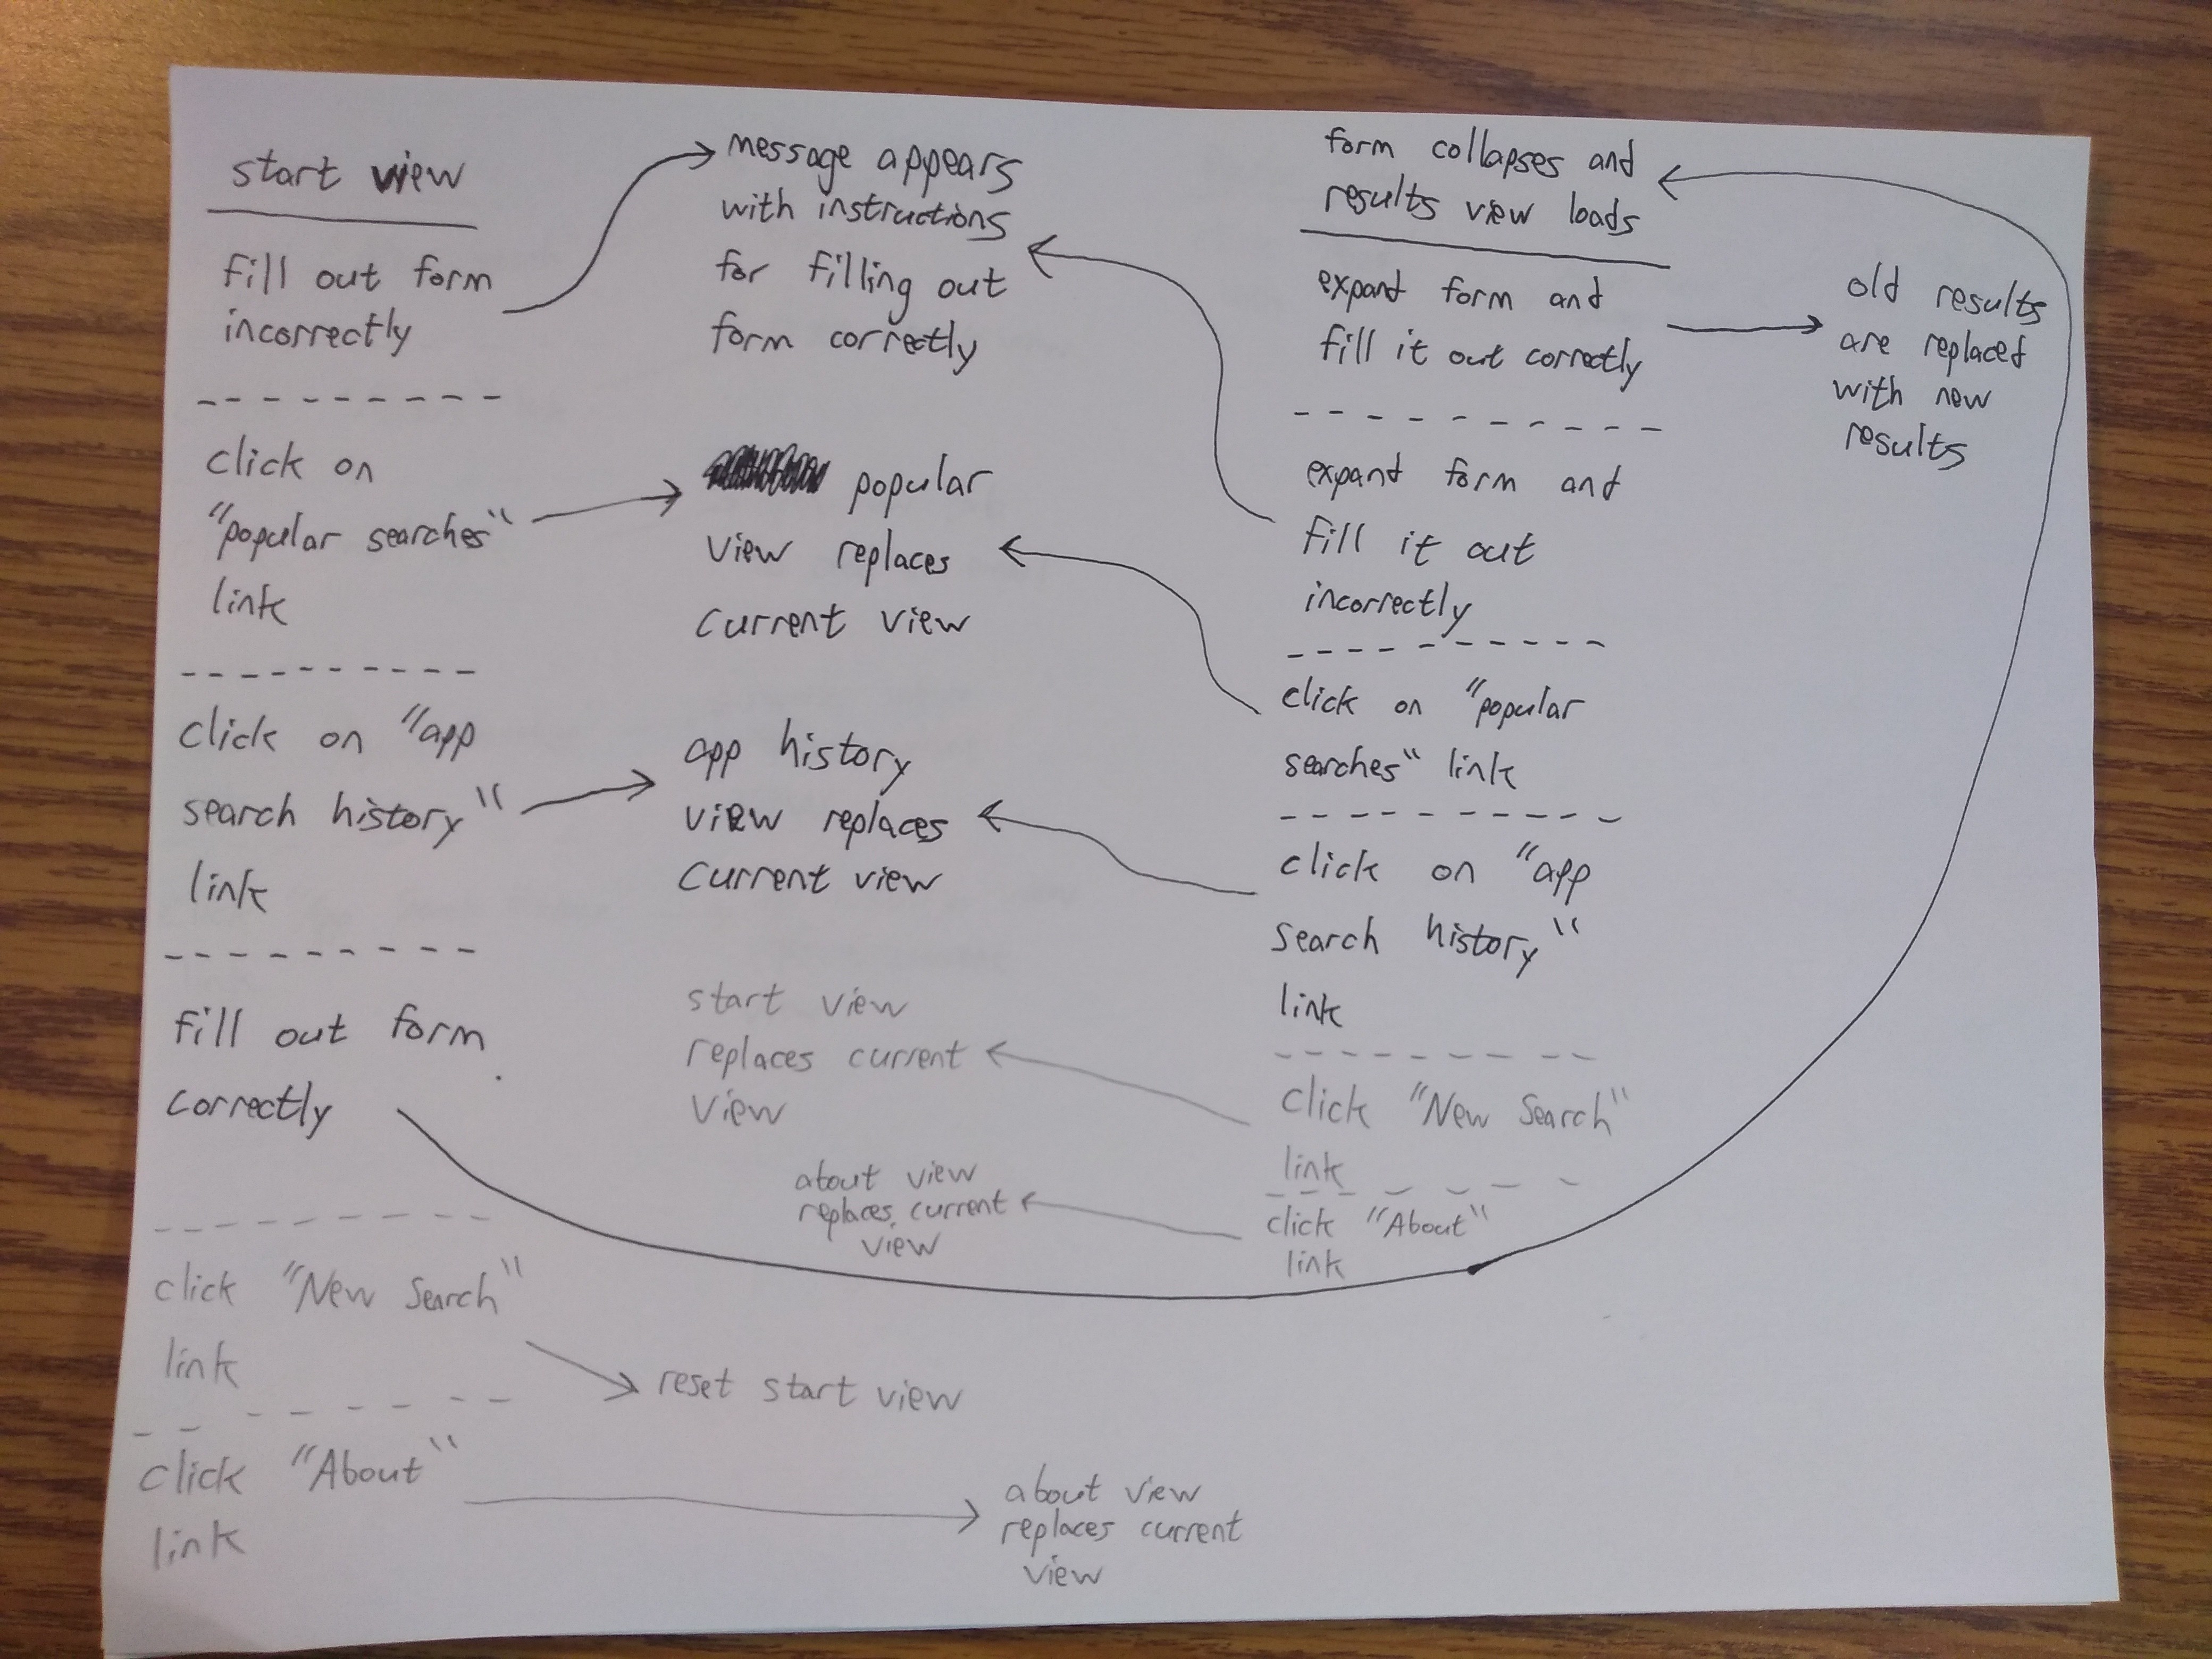 start view
fill out form
incorrectly
click on
"popular searches"
link
click on "app
search history"
link
fill out form
correctly
click "New Search"
link
click "About"
link
message appears
with instructions
for filling out
form correctly
popular
view replaces
current view
app history
view replaces
current view
start view
replaces current
view
about view
replaces current
view
reset start view
about view
replaces current
view
form collapses and
results view loads
expand form and
fill it out correctly
expand form and
fill it out
incorrectly
click on "popular
searches" link
click on "app
search history"
link
click "New Search"
link
click "About"
link
old results
are replaced
with new
results